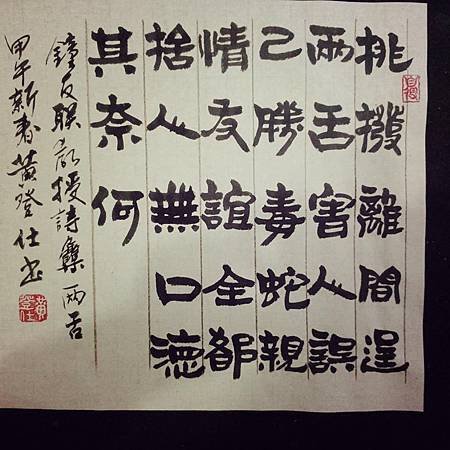 挑撥離間逞
兩舌害人誤
己勝毒蛇親
情友誼全都
捨人無口德
其奈何
鐘友聯教授詩集兩舌
甲午新春黃登仕書